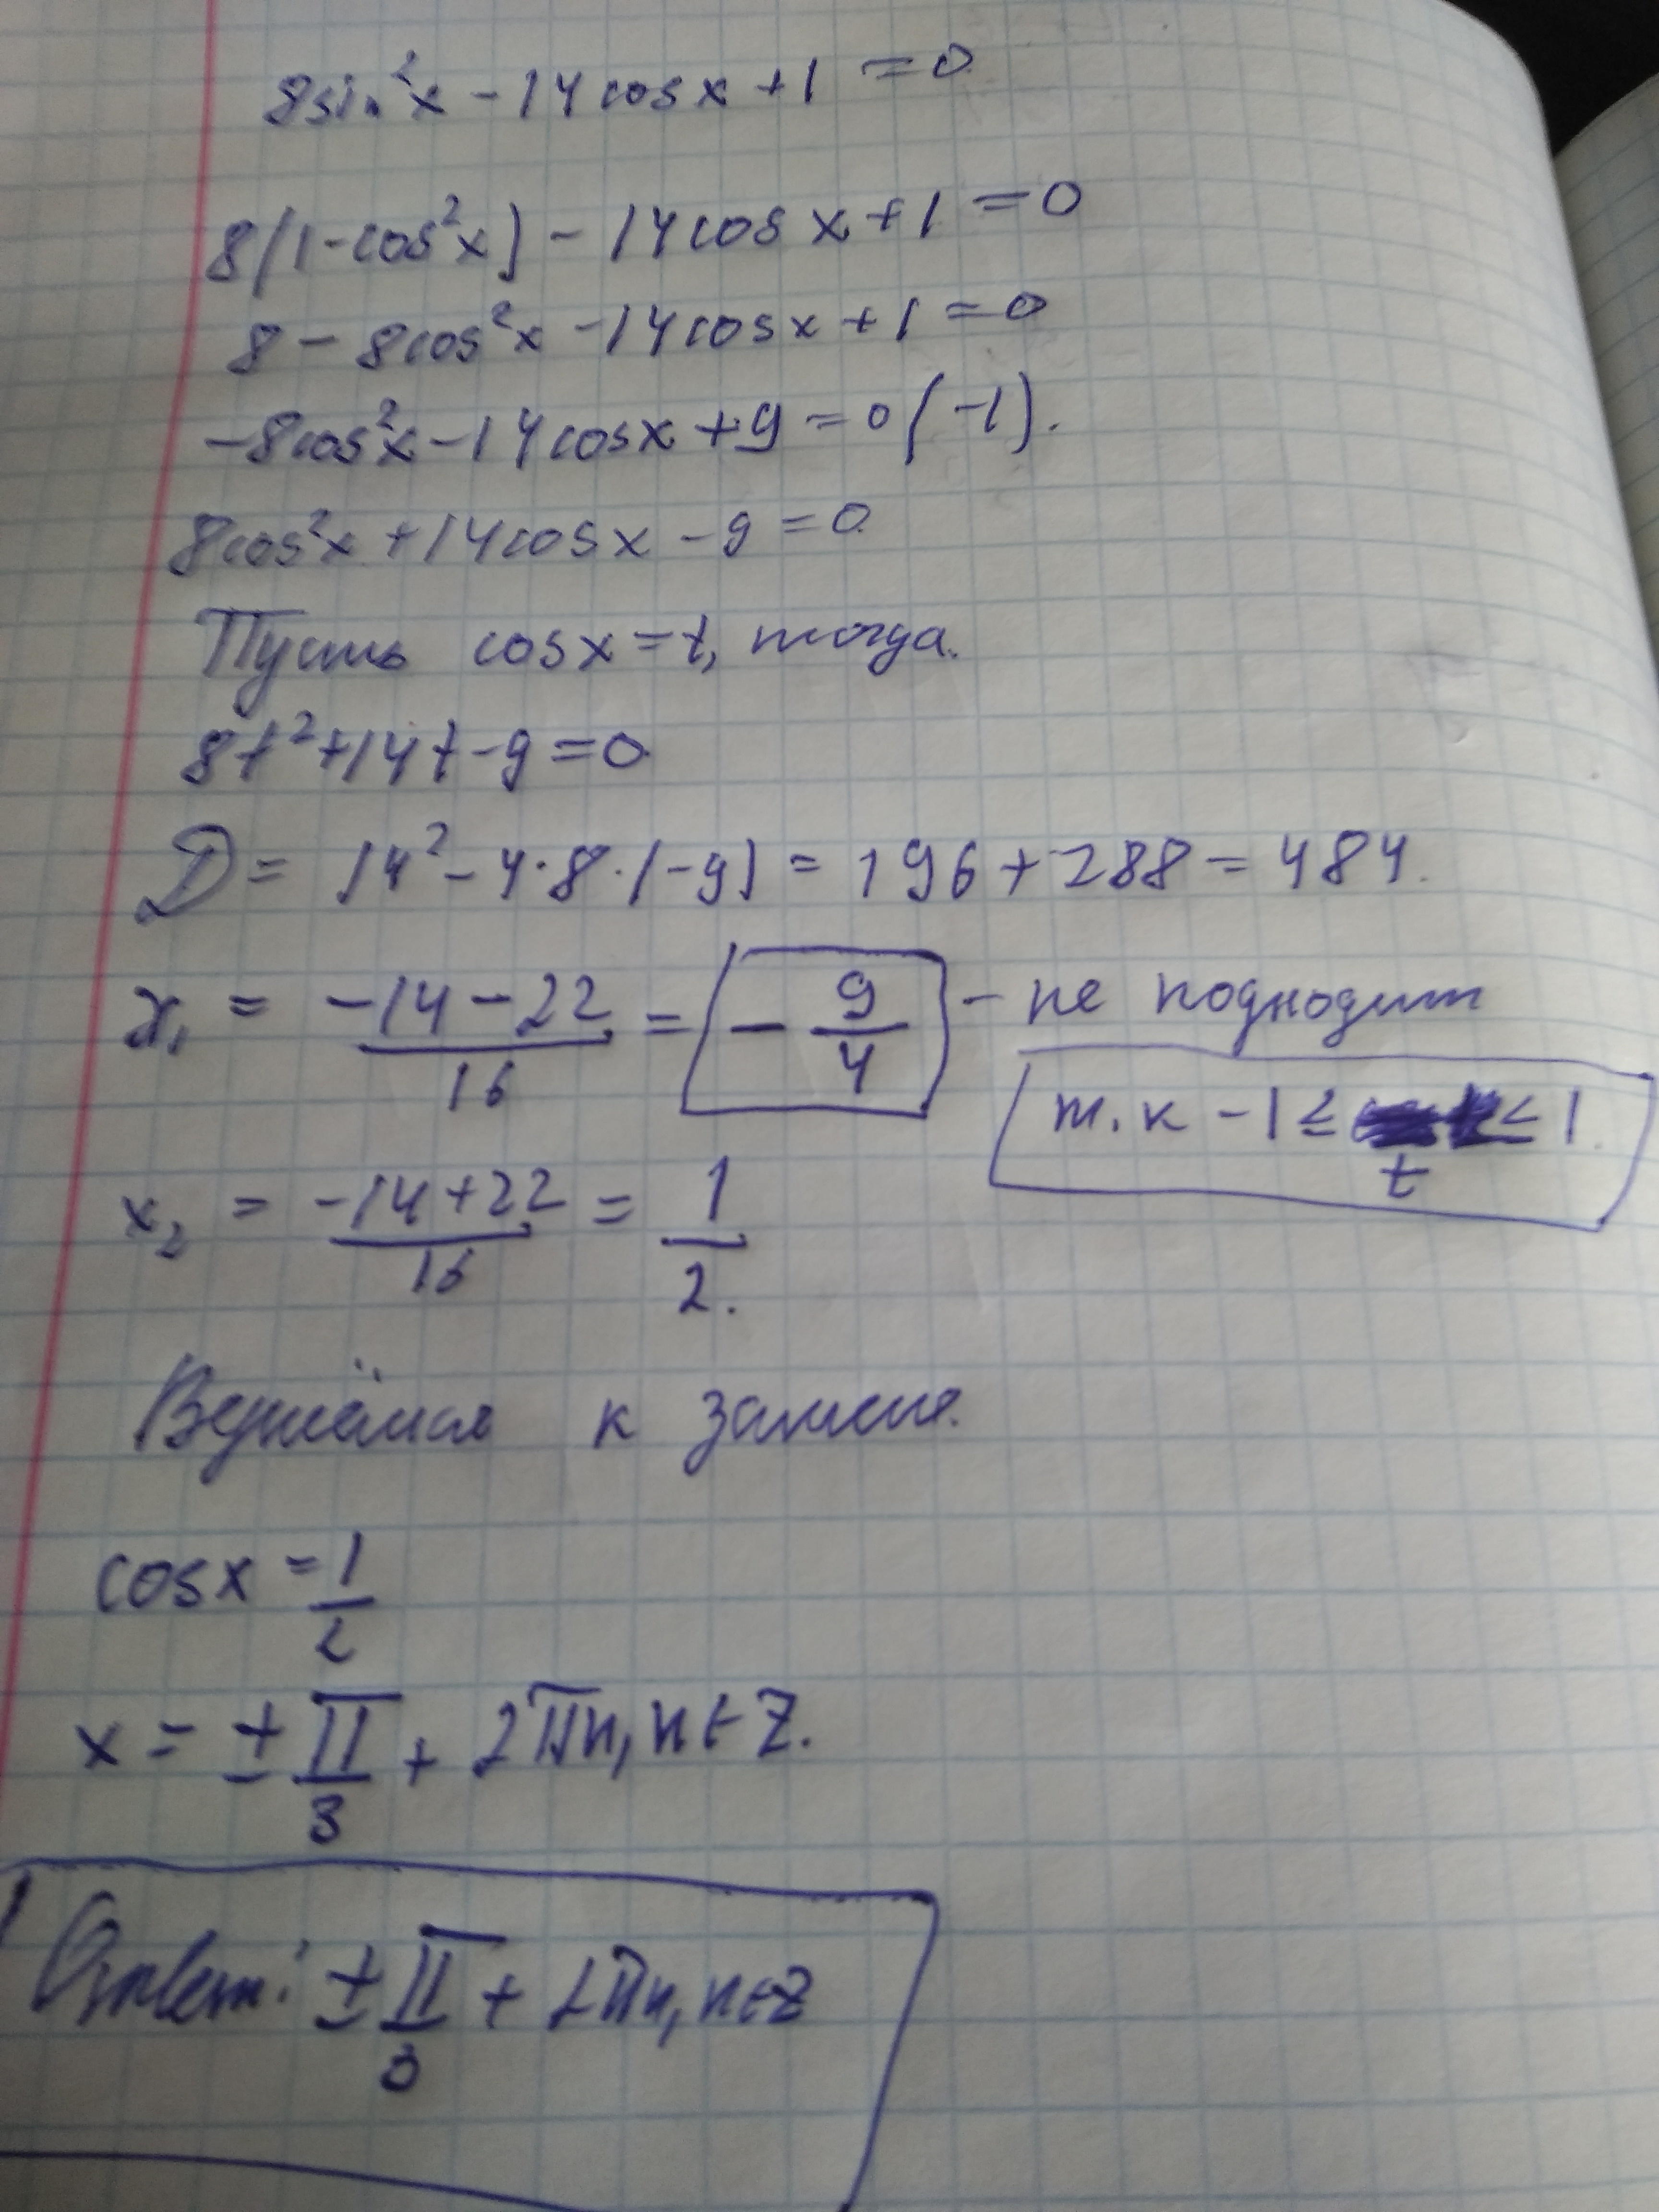 8sin²x - 14cosx + 1 = 0
8(1-cos²x) - 14cosx + 1 = 0
8 - 8cos²x - 14cosx + 1 = 0
-8cos²x - 14cosx + 9 = 0 (-1).
8cos²x + 14cosx - 9 = 0
Пусть cosx = t, тогда.
8t² + 14t - 9 = 0
D = 14² - 4·8·(-9) = 196 + 288 = 484.
x₁ = (-14-22)/16 = -9/4 - не подходит
т.к -1 ≤ t ≤ 1.
x₂ = (-14+22)/16 = 1/2.
Вернёмся к замене.
cosx = 1/2
x = ± π/3 + 2πn, n ∈ Z.
Ответ: ± π/3 + 2πn, n ∈ Z